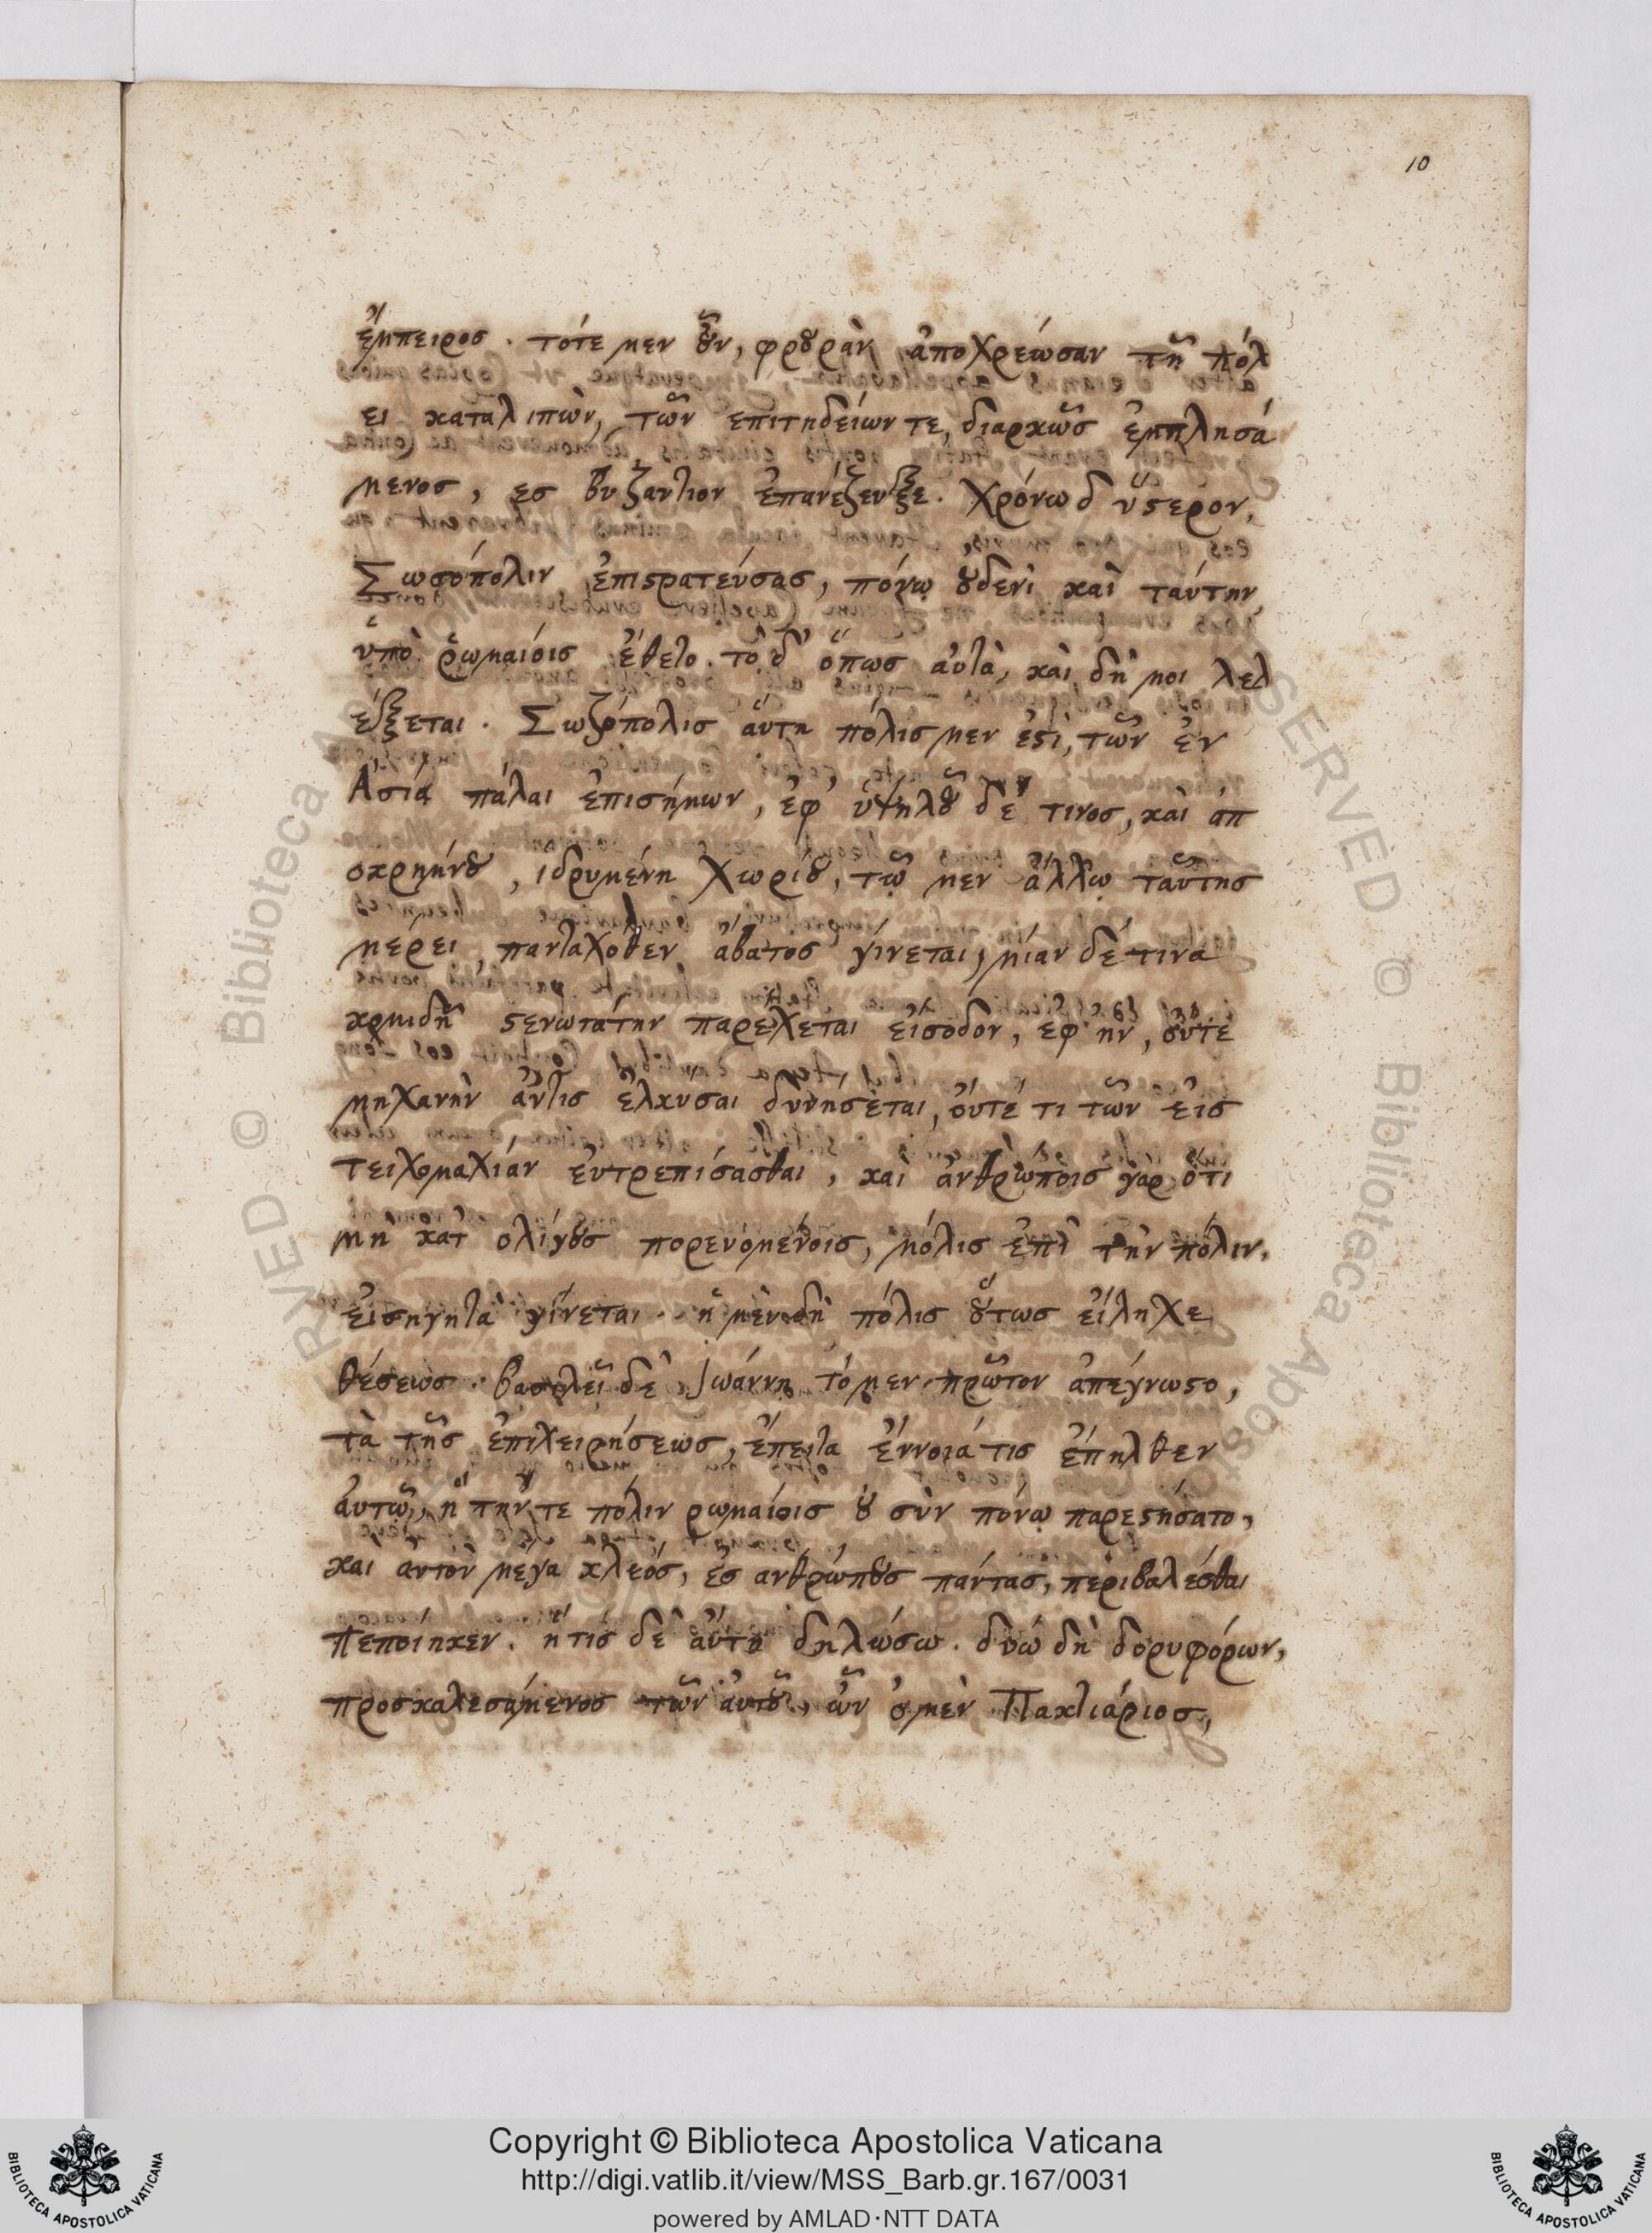 10
ἔμπειρος. τότε μεν ȣ̓͂ν, φρȣρὰν ἀποχρεώσαν τῆ πόλ
ει καταλιπὼν, τῶν επιτηδείων τε, διαρκῶς ἐμπλησά
μενος, ες βυζαντιον ἐπανέζευξε. Χρόνω δ ὕϛερον,
Σωσόπολιν ἐπιϛρατεύσας, πόνῳ ȣ̓δενὶ καὶ ταύτην
ὑπὸ ῥωμαίοις ἔθετο. τὸ δ' ὅπως αὐτὰ, καὶ δή μοι λελ
έξεται. Σωζόπολις ἄυτη πόλις μεν ἐϛὶ, τῶν ἐν
Ἀσίᾳ πάλαι ἐπισήμων, ἐφ' ὑψηλȣ͂ δέ τινος, καὶ ἀπ
οκρήμνȣ, ιδρυμένη Χωρίȣ, τῷ μεν ἄλλῳ ταῦτης
μέρει πανταχόθεν άβατος γίνεται, μίαν δέ τινα
κομιδῆ ϛενωτάτην παρέχεται εἴσοδον, εφ' ἣν, ὄυτε
μηχανὴν ἄντις ἑλκυσαι δυνήσεται, ὄυτέ τι τῶν εἰς
τειχομαχίαν ἐυτρεπίσασθαι, καὶ ἀνθρώποις γὰρ ὅτι
μὴ κατ' ολίγȣς πορευομένοις, μόλις ἐπὶ τὴν πόλιν.
εἰσηγητὰ γίνεται. ἡ μὲν δὴ πόλις ȣ̔́τως εἴληχε
θέσεως. βασιλεῖ δὲ Ιωάννῃ τό μεν πρῶτον ἀπέγνωϛο,
τὰ τῆς ἐπιχειρήσεως, ἔπειτα ἔννοιά τις ἐπηλθεν
ἀυτῷ, ἣ τήν τε πόλιν ρωμαίοις ȣ̓ σὺν πόνῳ παρεϛήσατο,
καὶ αυτὸν μέγα κλέος, ἐς ανθρώπȣς πάντας, περιβαλέσθαι
πεποίηκεν. ἥτις δὲ ἄυτη δηλώσω. δυώ δὴ δορυφόρων,
προσκαλεσάμενος τῶν ἀυτȣ͂, ὧν ὁ μὲν Πακτιάριος,
Copyright © Biblioteca Apostolica Vaticana
http://digi.vatlib.it/view/MSS_Barb.gr.167/0031
powered by AMLAD·NTT DATA